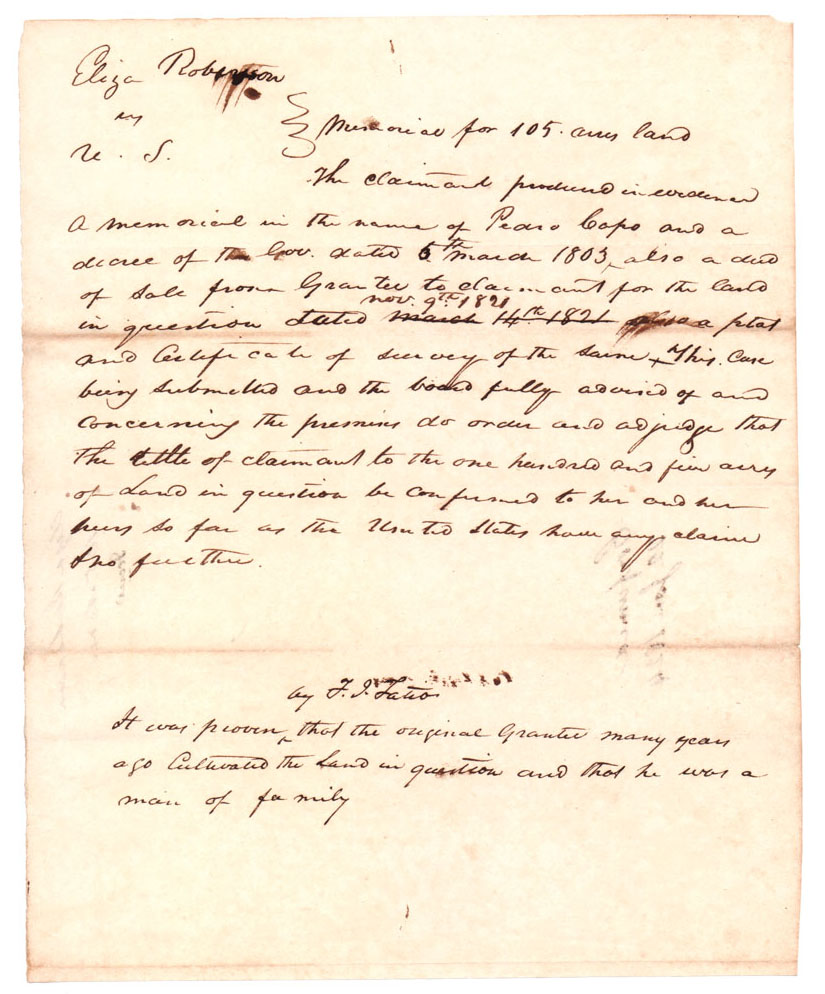 Eliza Robertson
vs
U. S.
Memorial for 105. acres land
The claimant produced in evidence
A memorial in the name of Pedro Capo and a
decree of the Gov. dated 6th march 1803, also a deed
of Sale from Grantee to claimant for the land
nov. 9th 1821
in question dated march 14th 1821 also a plat
and Certificate of survey of the same, This Case
being submitted and the board fully advised of and
concerning the premises do order and adjudge that
the title of claimant to the one hundred and five acres
of Land in question be confirmed to her and her
heirs so far as the United States have any claim
& no further.
by F. J. Fatio
It was proven, that the original Grantee many years
ago Cultivated the Land in question and that he was a
man of family